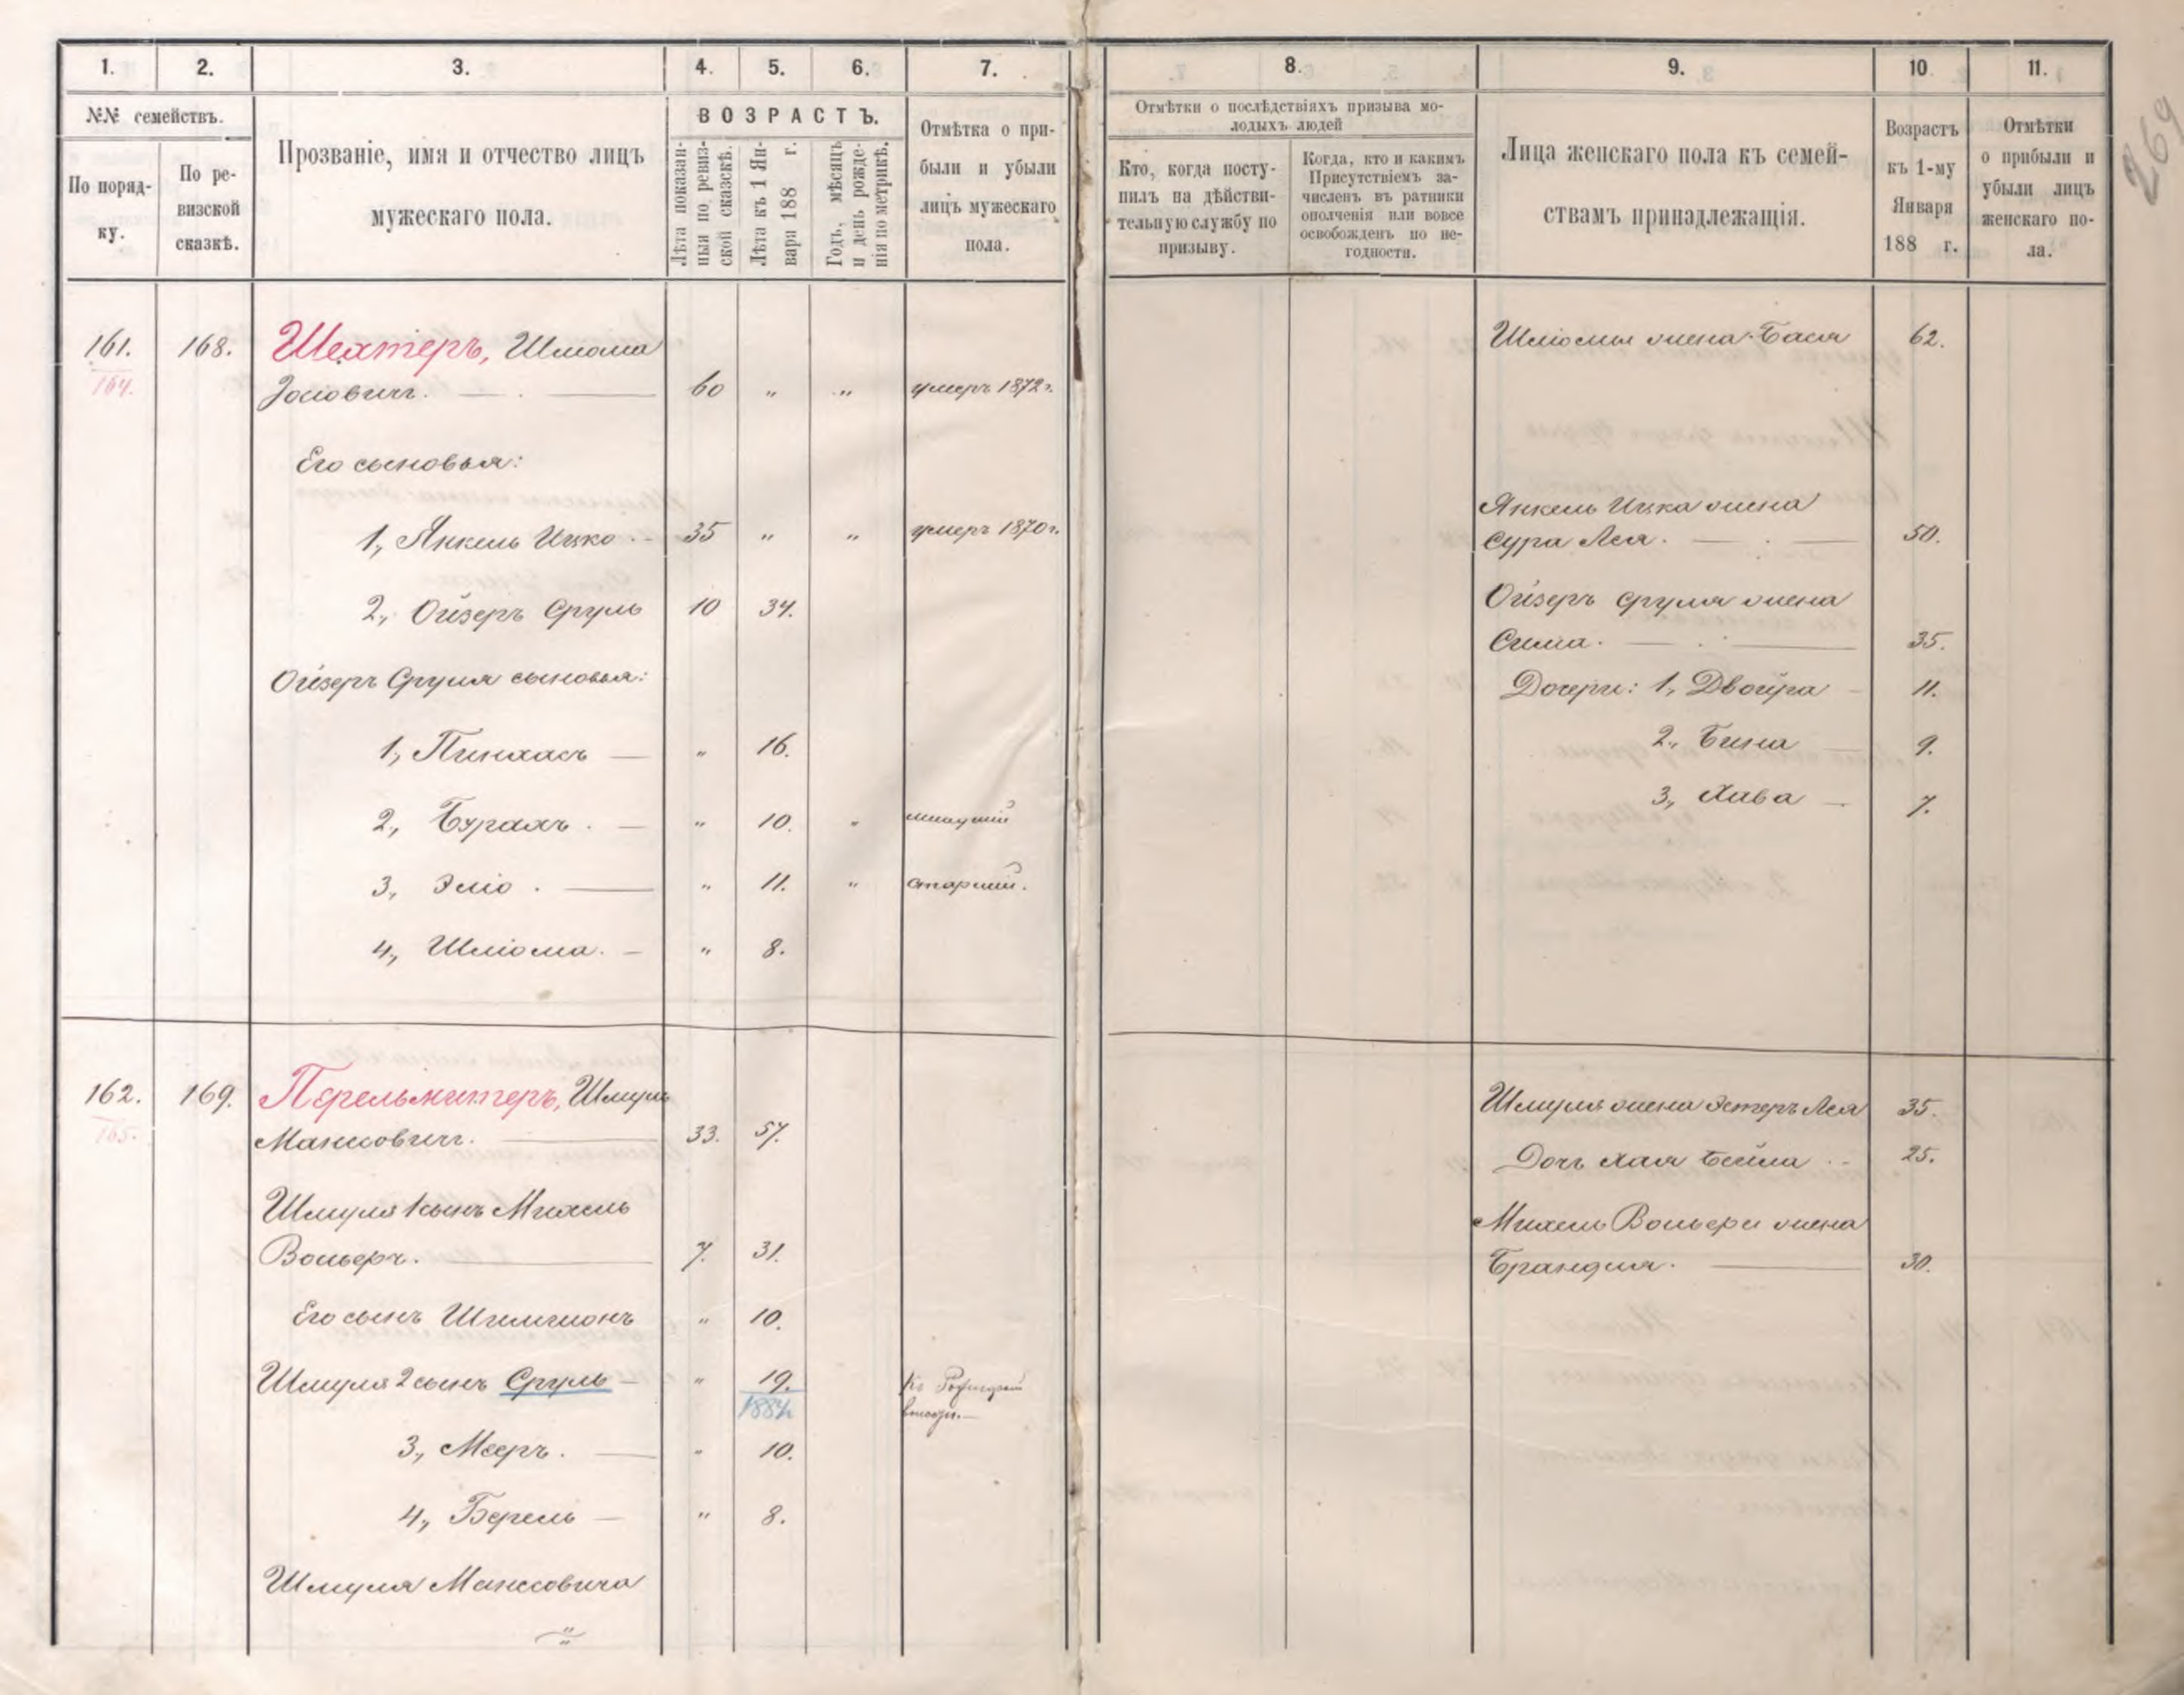 1. 2. 3. 4. 5. 6. 7. 8. 9. 10 11.
№№ семействъ.
По поряд-
ку.
По ре-
визской
сказкѣ.
Прозваніе, имя и отчество лицъ
мужескаго пола.
ВОЗРАСТЪ.
Лѣта показан-
ныя по ревиз-
ской сказкѣ.
Лѣта къ 1 Ян-
варя 188 г.
Годъ, мѣсяцъ
и день рожде-
нія по метрикѣ.
Отмѣтка о при-
были и убыли
лицъ мужескаго
пола.
Отмѣтки о послѣдствіяхъ призыва мо-
лодыхъ людей
Кто, когда посту-
пилъ на дѣйстви-
тельную службу по
призыву.
Когда, кто и какимъ
Присутствіемъ за-
численъ въ ратники
ополченія или вовсе
освобожденъ по не-
годности.
Лица женскаго пола къ семей-
ствамъ принадлежащія.
Возрастъ
къ 1-му
Января
188 г.
Отмѣтки
о прибыли и
убыли лицъ
женскаго по-
ла.
269
161. 168. Шехтеръ, Шлиома Шліомы жена Бася 62.
164. Іосіовичъ. 60 " " умеръ 1872 г.
Его сыновья:
Янкель Ицка жена
1, Янкель Ицко 35 " " умеръ 1870 г. Сура Лея. 50.
2, Ойзеръ Сруль 10 34. Ойзеръ Сруля жена
Сима. 35.
Ойзеръ Сруля сыновья: Дочери: 1, Двойра 11.
1, Пинхасъ " 16. 2, Бина 9.
2, Бурахъ. " 10. " младшій 3, Хава 7.
3, Эліо. " 11. " старшій.
4, Шліома. " 8.
162. 169. Перельмитеръ, Шмуль Шмуля жена Эстеръ Лея 35.
165. Манисовичъ. 33. 57. Дочь Хая Бейла 25.
Шмуля 1 сынъ Михель Михель Вольвера жена
Вольверъ. 7. 31. Брандля. 30.
Его сынъ Шимшонъ " 10.
Шмуля 2 сынъ Сруль " 19. Къ
1884
3, Мееръ. " 10.
4, Берель " 8.
Шмуля Манисовича